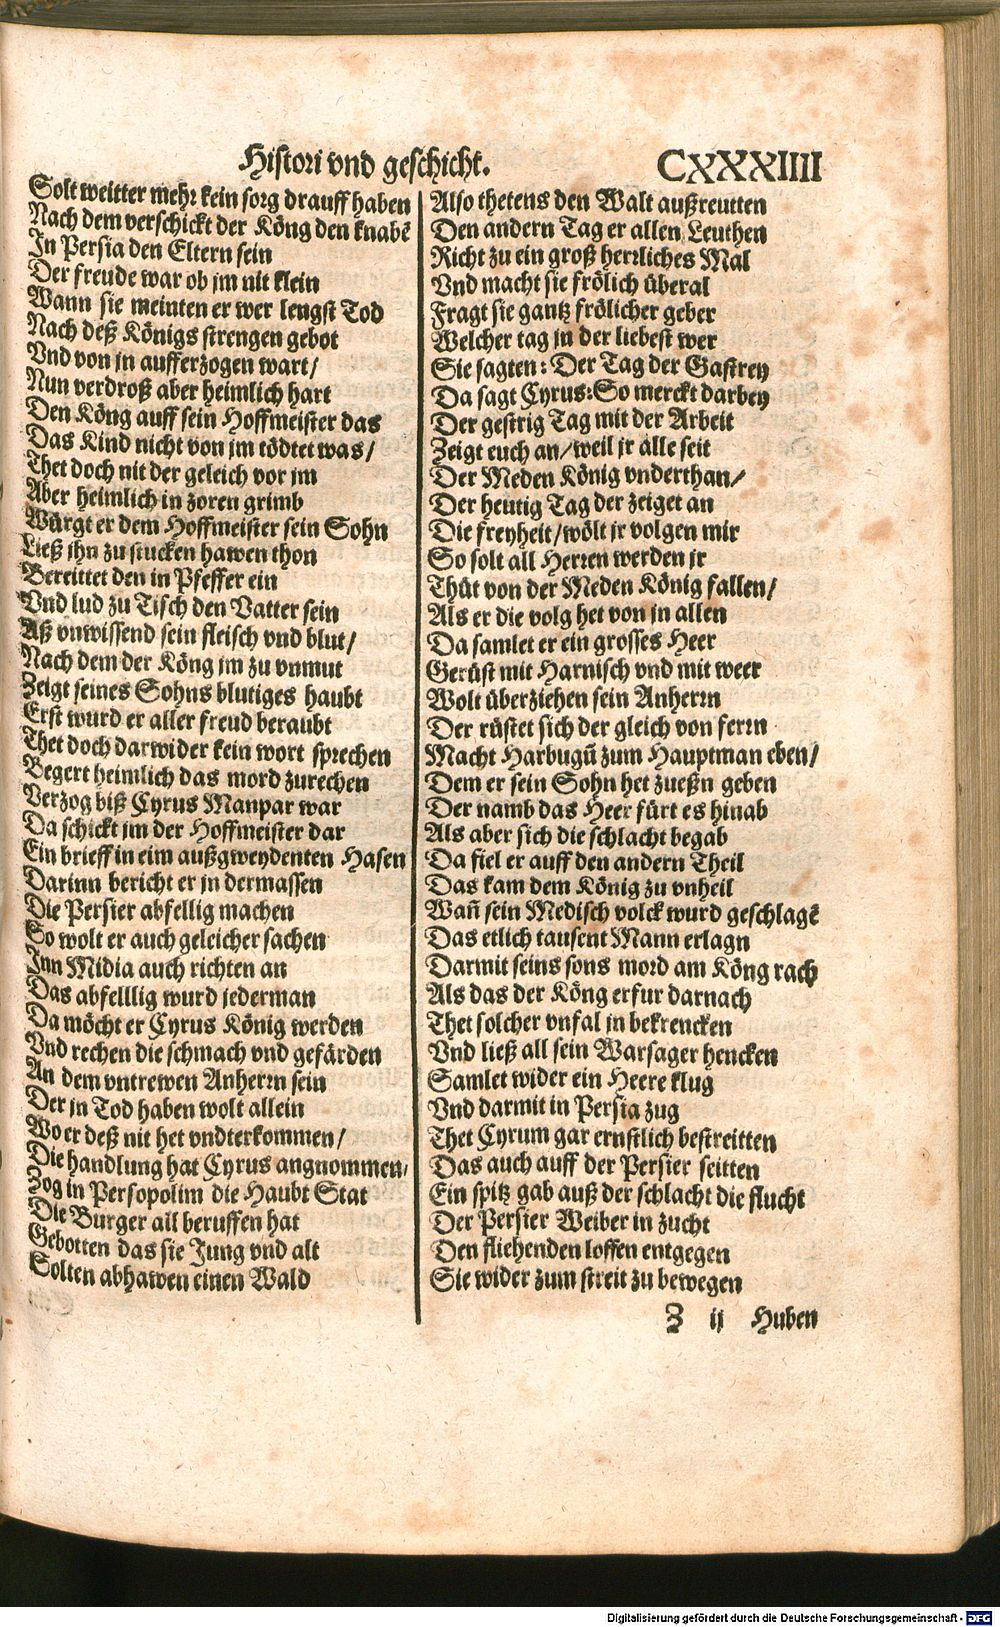 Histori vnd geschicht. CXXXIIII
Solt weitter mehr kein sorg drauff haben
Nach dem verschickt der Köng den knabē
In Persia den Eltern sein
Der freude war ob jm nit klein
Wann sie meinten er wer lengst Tod
Nach deß Königs strengen gebot
Vnd von jn aufferzogen wart/
Nun verdroß aber heimlich hart
Den Köng auff sein Hoffmeister das
Das Kind nicht von jm tödtet was/
Thet doch nit der geleich vor jm
Aber heimlich in zoren grimb
Würgt er dem Hoffmeister sein Sohn
Ließ jhn zu stucken hawen thon
Bereittet den in Pfeffer ein
Vnd lud zu Tisch den Vatter sein
Aß vnwissend sein fleisch vnd blut/
Nach dem der Köng jm zu vnmut
Zeigt seines Sohns blutiges haubt
Erst wurd er aller freud beraubt
Thet doch darwider kein wort sprechen
Begert heimlich das mord zurechen
Verzog biß Cyrus Manpar war
Da schickt jm der Hoffmeister dar
Ein brieff in eim außgweydenten Hasen
Darinn bericht er jn dermassen
Die Persier abfellig machen
So wolt er auch geleicher sachen
Inn Midia auch richten an
Das abfelllig wurd jederman
Da möcht er Cyrus König werden
Vnd rechen die schmach vnd gefärden
An dem vntrewen Anherrn sein
Der jn Tod haben wolt allein
Wo er deß nit het vndterkommen/
Die handlung hat Cyrus angnommen/
Zog in Persopolim die Haubt Stat
Die Burger all beruffen hat
Gebotten das sie Jung vnd alt
Solten abhawen einen Wald
Also thetens den Walt außreutten
Den andern Tag er allen Leuthen
Richt zu ein groß herrliches Mal
Vnd macht sie frölich überal
Fragt sie gantz frölicher geber
Welcher tag jn der liebest wer
Sie sagten: Der Tag der Gastrey
Da sagt Cyrus: So merckt darbey
Der gestrig Tag mit der Arbeit
Zeigt euch an/ weil jr alle seit
Der Meden König vnderthan/
Der heutig Tag der zeiget an
Die freyheit/ wölt jr volgen mir
So solt all Herren werden jr
Thüt von der Meden König fallen/
Als er die volg het von jn allen
Da samlet er ein grosses Heer
Gerüst mit Harnisch vnd mit weer
Wolt überziehen sein Anherrn
Der rüstet sich der gleich von ferrn
Macht Harbugū zum Hauptman eben/
Dem er sein Sohn het zueßn geben
Der namb das Heer fürt es hinab
Als aber sich die schlacht begab
Da fiel er auff den andern Theil
Das kam dem König zu vnheil
Wañ sein Medisch volck wurd geschlagē
Das etlich tausent Mann erlagn
Darmit seins sons mord am Köng rach
Als das der Köng erfur darnach
Thet solcher vnfal jn bekrencken
Vnd ließ all sein Warsager hencken
Samlet wider ein Heere klug
Vnd darmit in Persia zug
Thet Cyrum gar ernstlich bestreitten
Das auch auff der Persier seitten
Ein spitz gab auß der schlacht die flucht
Der Persier Weiber in zucht
Den fliehenden loffen entgegen
Sie wider zum streit zu bewegen
Z ij Huben
Digitalisierung gefördert durch die Deutsche Forschungsgemeinschaft - DFG